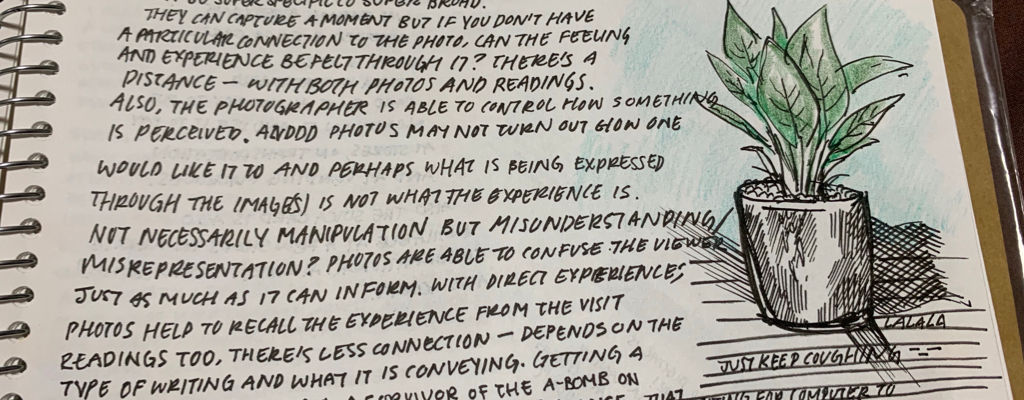 SUPER SPECIFIC TO SUPER BROAD.
THEY CAN CAPTURE A MOMENT BUT IF YOU DON'T HAVE
A PARTICULAR CONNECTION TO THE PHOTO, CAN THE FEELING
AND EXPERIENCE BE FELT THROUGH IT? THERE'S A
DISTANCE — WITH BOTH PHOTOS AND READINGS.
ALSO, THE PHOTOGRAPHER IS ABLE TO CONTROL HOW SOMETHING
IS PERCEIVED. ANDDD PHOTOS MAY NOT TURN OUT HOW ONE
WOULD LIKE IT TO AND PERHAPS WHAT IS BEING EXPRESSED
THROUGH THE IMAGE(S) IS NOT WHAT THE EXPERIENCE IS.
NOT NECESSARILY MANIPULATION BUT MISUNDERSTANDING/
MISREPRESENTATION? PHOTOS ARE ABLE TO CONFUSE THE VIEWER
JUST AS MUCH AS IT CAN INFORM. WITH DIRECT EXPERIENCES,
PHOTOS HELP TO RECALL THE EXPERIENCE FROM THE VISIT
READINGS TOO, THERE'S LESS CONNECTION — DEPENDS ON THE
TYPE OF WRITING AND WHAT IT IS CONVEYING. GETTING A
SURVIVOR OF THE A-BOMB ON
THAT
LALALA
JUST KEEP COUGHING
FOR COMPUTER TO